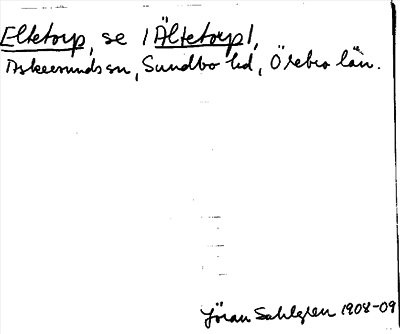 Eltetorp, se |Ältetorp|,
Askersunds sn, Sundbo hd, Örebro län.
Jöran Sahlgren 1908-09